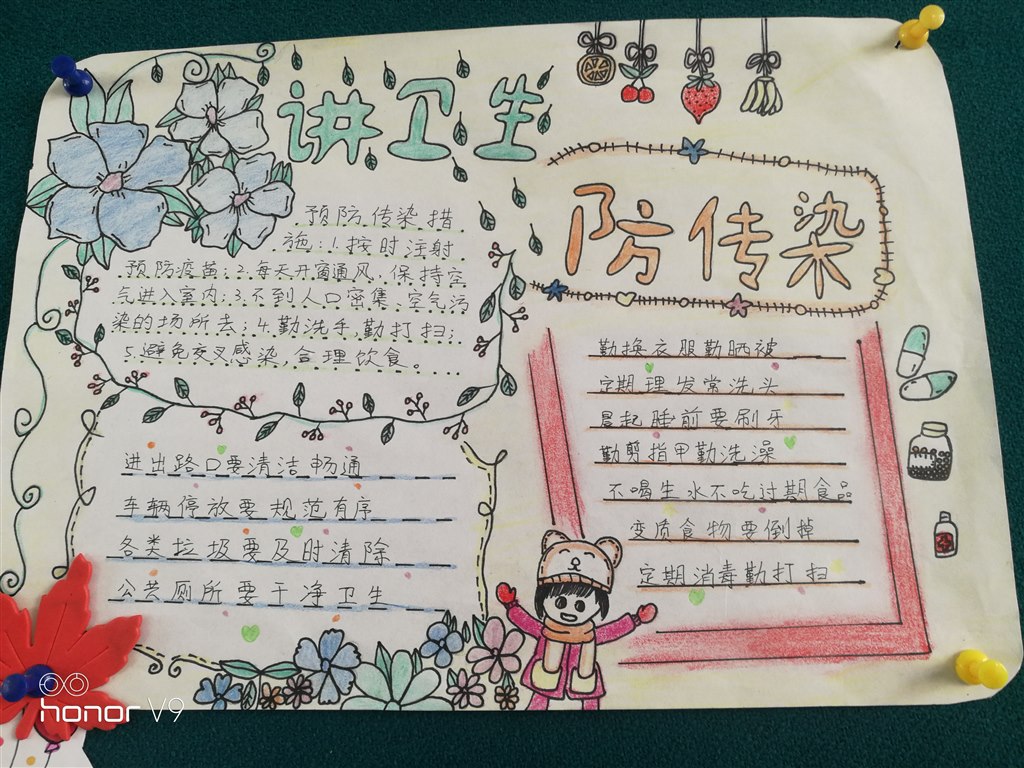 讲卫生
防传染
预防传染措
施:1.按时注射
预防疫苗;2.每天开窗通风,保持空
气进入室内;3.不到人口密集、空气污
染的场所去;4.勤洗手,勤打扫;
5.避免交叉感染,合理饮食。
进出路口要清洁畅通
车辆停放要规范有序
各类垃圾要及时清除
公共厕所要干净卫生
勤换衣服勤晒被
定期理发常洗头
晨起睡前要刷牙
勤剪指甲勤洗澡
不喝生水不吃过期食品
变质食物要倒掉
定期消毒勤打扫
honor V9